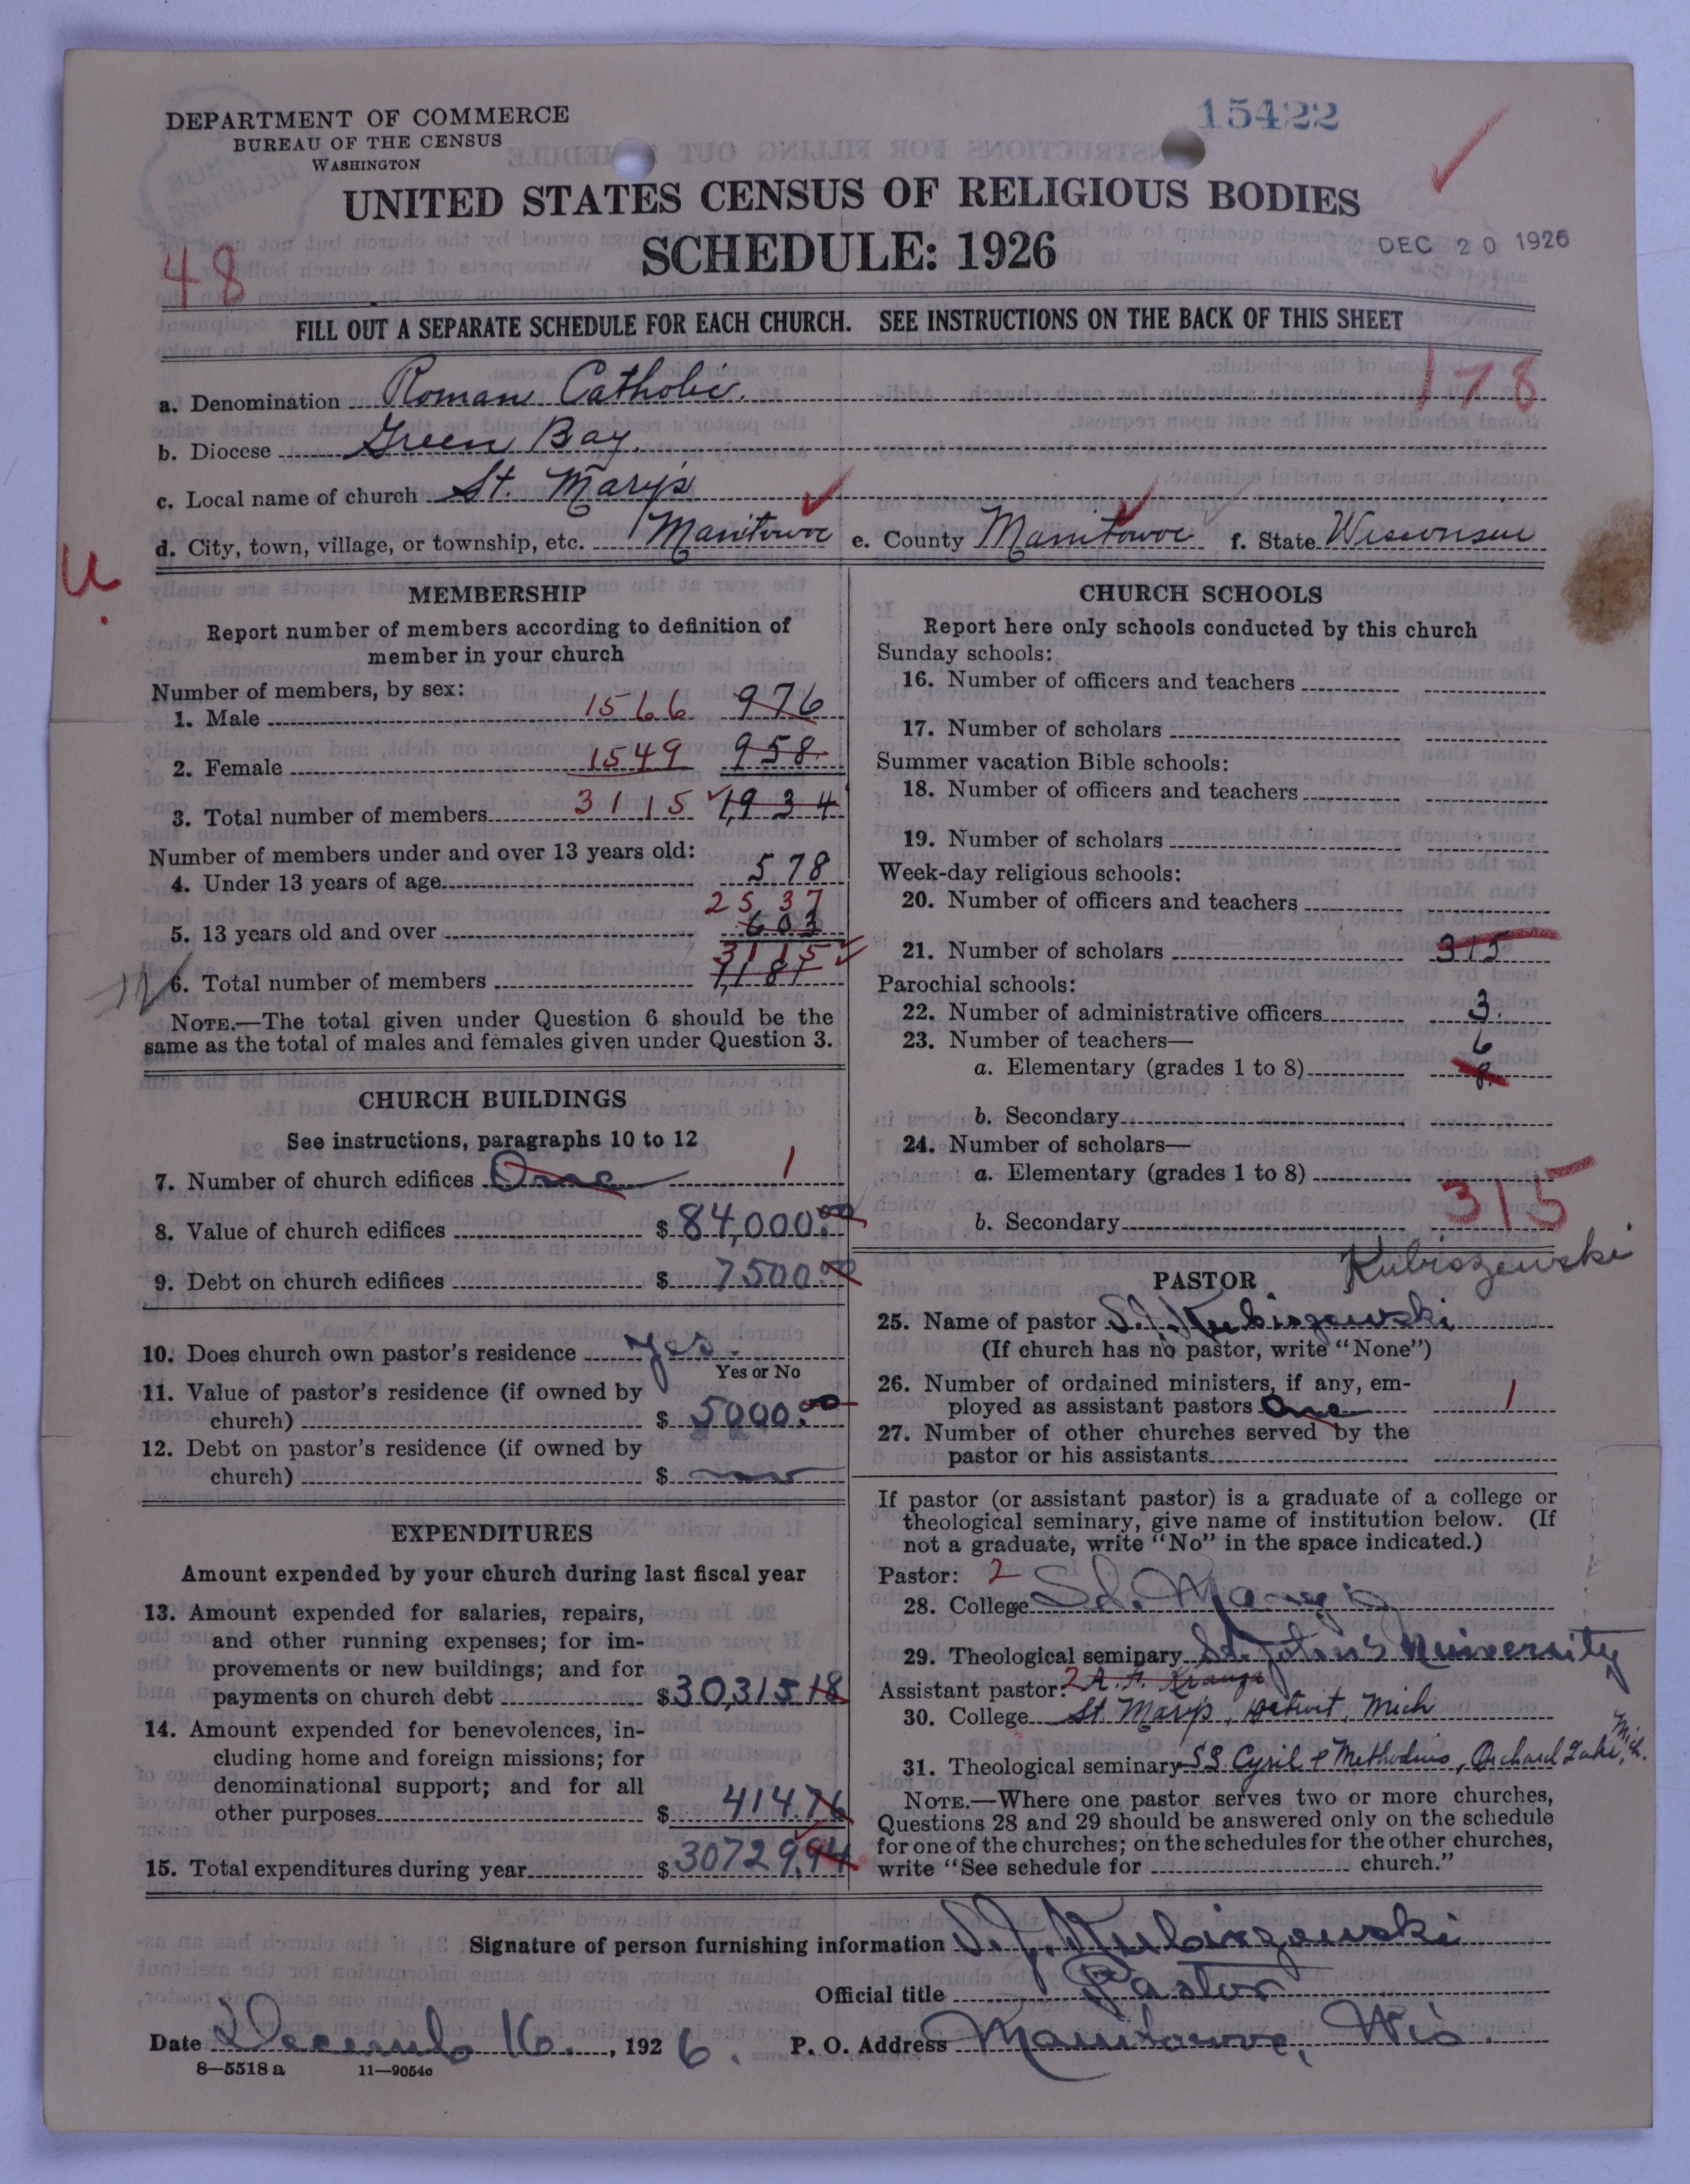 15422
DEPARTMENT OF COMMERCE
BUREAU OF THE CENSUS
WASHINGTON
UNITED STATES CENSUS OF RELIGIOUS BODIES
SCHEDULE: 1926
DEC 20 1926
48
FILL OUT A SEPARATE SCHEDULE FOR EACH CHURCH. SEE INSTRUCTIONS ON THE BACK OF THIS SHEET
178
a. Denomination Roman Catholic.
b. Diocese Green Bay.
c. Local name of church St. Mary's
d. City, town, village, or township, etc. Manitowoc e. County Manitowoc f. State Wisconsin
U.
MEMBERSHIP
Report number of members according to definition of
member in your church
Number of members, by sex:
1. Male 1566 976
2. Female 1549 958
3. Total number of members 3115 1,934
Number of members under and over 13 years old:
4. Under 13 years of age 578
2537
5. 13 years old and over 603
3115
6. Total number of members 1,181
NOTE.—The total given under Question 6 should be the
same as the total of males and females given under Question 3.
CHURCH BUILDINGS
See instructions, paragraphs 10 to 12
7. Number of church edifices One 1
8. Value of church edifices $ 84,000.00
9. Debt on church edifices $ 7500.00
10. Does church own pastor's residence Yes.
Yes or No
11. Value of pastor's residence (if owned by
church) $ 5000.00
12. Debt on pastor's residence (if owned by
church) $
EXPENDITURES
Amount expended by your church during last fiscal year
13. Amount expended for salaries, repairs,
and other running expenses; for im-
provements or new buildings; and for
payments on church debt $ 30,315 18
14. Amount expended for benevolences, in-
cluding home and foreign missions; for
denominational support; and for all
other purposes $ 414.76
15. Total expenditures during year $ 30729.94
CHURCH SCHOOLS
Report here only schools conducted by this church
Sunday schools:
16. Number of officers and teachers
17. Number of scholars
Summer vacation Bible schools:
18. Number of officers and teachers
19. Number of scholars
Week-day religious schools:
20. Number of officers and teachers
21. Number of scholars 315
Parochial schools:
22. Number of administrative officers 3.
23. Number of teachers—
6
a. Elementary (grades 1 to 8) 8
b. Secondary
24. Number of scholars—
a. Elementary (grades 1 to 8) 315
b. Secondary
Kubiszewski
PASTOR
25. Name of pastor S.J. Kubiszewski
(If church has no pastor, write "None")
26. Number of ordained ministers, if any, em-
ployed as assistant pastors One 1
27. Number of other churches served by the
pastor or his assistants
If pastor (or assistant pastor) is a graduate of a college or
theological seminary, give name of institution below. (If
not a graduate, write "No" in the space indicated.)
Pastor: 2
28. College St. Mary's
29. Theological seminary St. John's University
Assistant pastor: 2 A. F.
30. College St. Mary's, Detroit, Mich
31. Theological seminary SS. Cyril & Methodius, Orchard Lake, Mich.
NOTE.—Where one pastor serves two or more churches,
Questions 28 and 29 should be answered only on the schedule
for one of the churches; on the schedules for the other churches,
write "See schedule for church."
Signature of person furnishing information S.J. Kubiszewski
Official title Pastor
Date December 16., 1926. P. O. Address Manitowoc, Wis.
8—5518 a 11—9054c